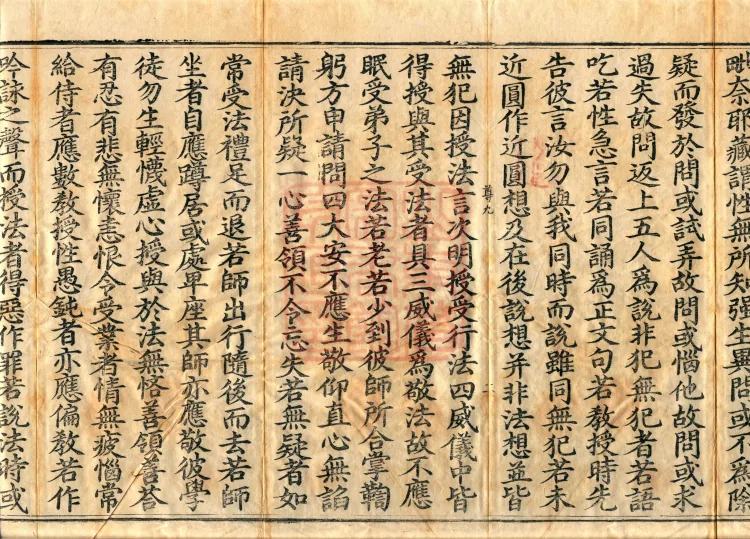 毗奈耶藏謂性無所知強生異問或不爲除
疑而發於問或試弄故問或惱他故問或求
過失故問返上五人爲說非犯無犯者若語
吃若性急言若同誦爲正文句若教授時先
告彼言汝勿與我同時而說雖同無犯若未
近圓作近圓想及在後說想并非法想並皆
尊九
二
無犯因授法言次明授受行法四威儀中皆
得授與其受法者具三威儀爲敬法故不應
眠受弟子之法若老若少到彼師所合掌鞫
躬方申請問四大安不應生敬仰直心無諂
請決所疑一心善領不令忘失若無疑者如
常受法禮足而退若師出行隨後而去若師
坐者自應蹲居或處卑座其師亦應敬彼學
徒勿生輕懱虛心授與於法無悋善領善答
有忍有悲無懷恚恨令受業者情無疲惱常
給侍者應數教授性愚鈍者亦應偏教若作
吟詠之聲而授法者得惡作罪若說法時或